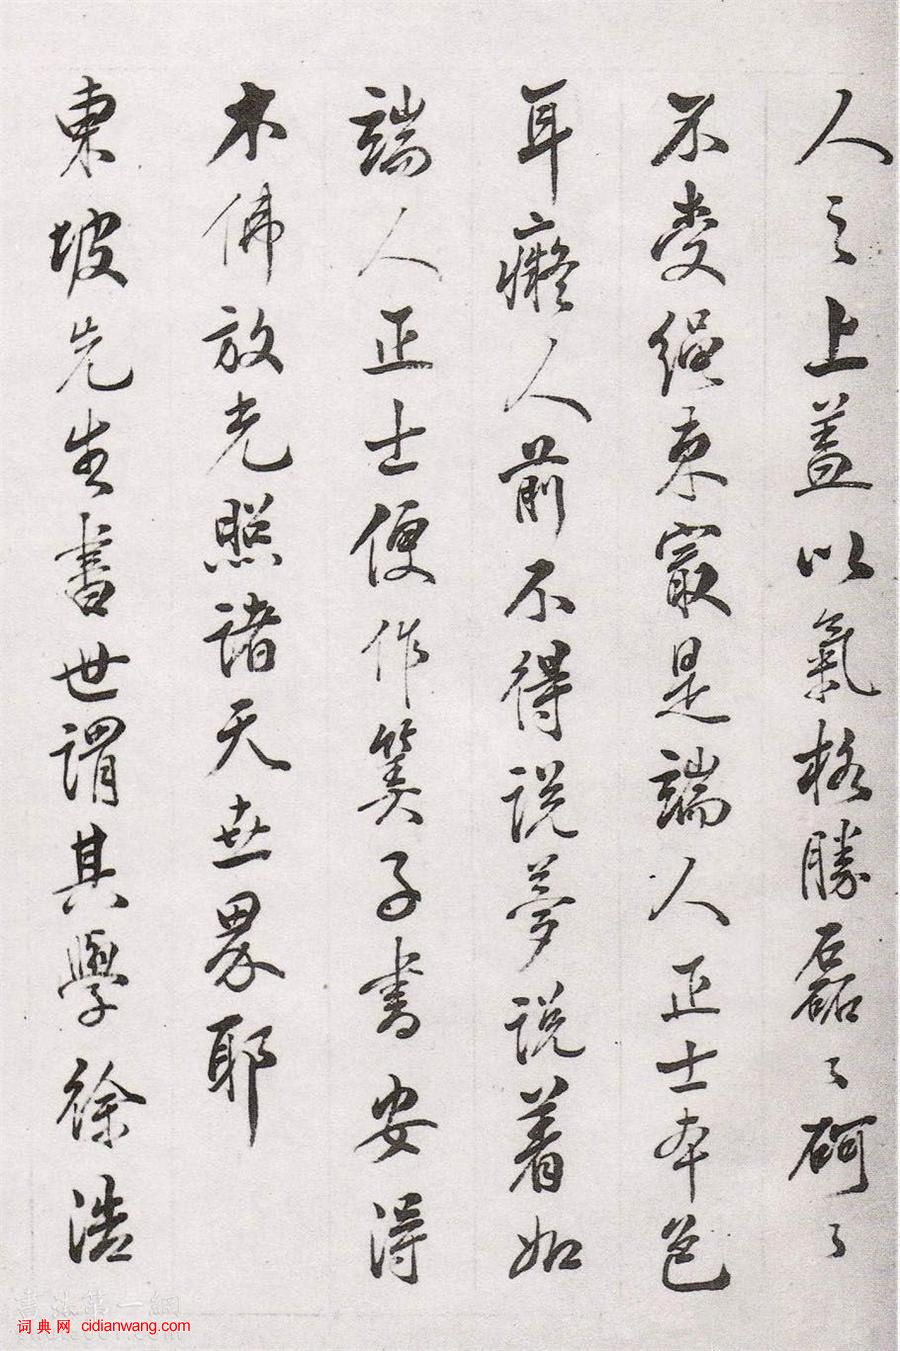 人之上蓋以氣格勝磊〻砢〻
不受繩束寂是端人正士本色
耳癡人前不得说夢说着如
端人正士便作筭子書安得
木佛放光照諸天世界耶
東坡先生書世謂其學徐浩
词典网 cidianwang.com